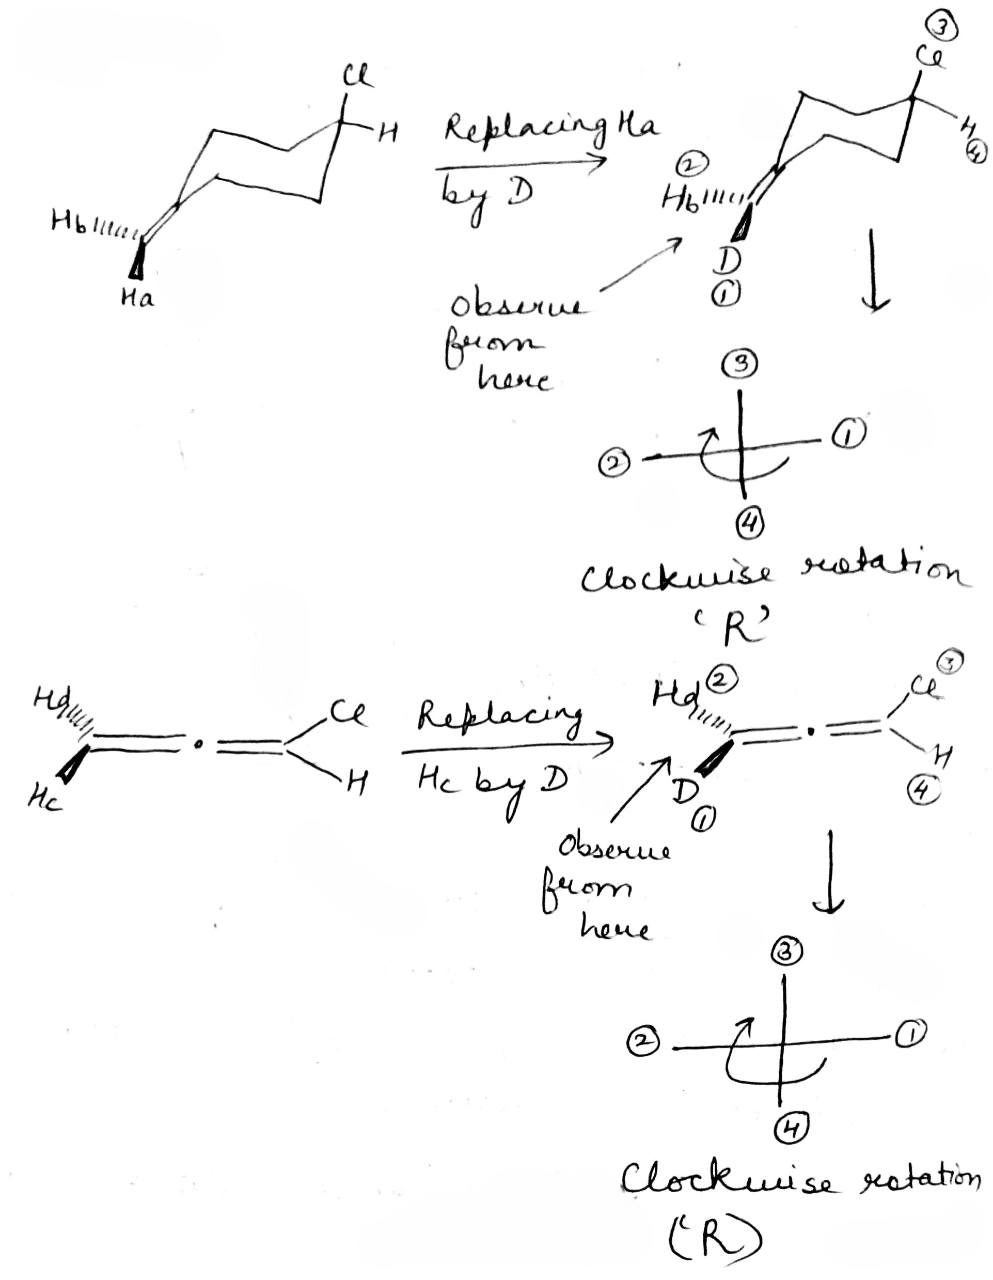 Cl
H
Hb
Ha
Replacing Ha
by D
③
Cl
H
④
②
Hb
D
①
Observe
from
here
③
②
①
④
Clockwise rotation
'R'
Hd
Hc
Cl
H
Replacing
Hc by D
Hd ②
D
①
③
Cl
H
④
Observe
from
here
③
②
①
④
Clockwise rotation
('R)